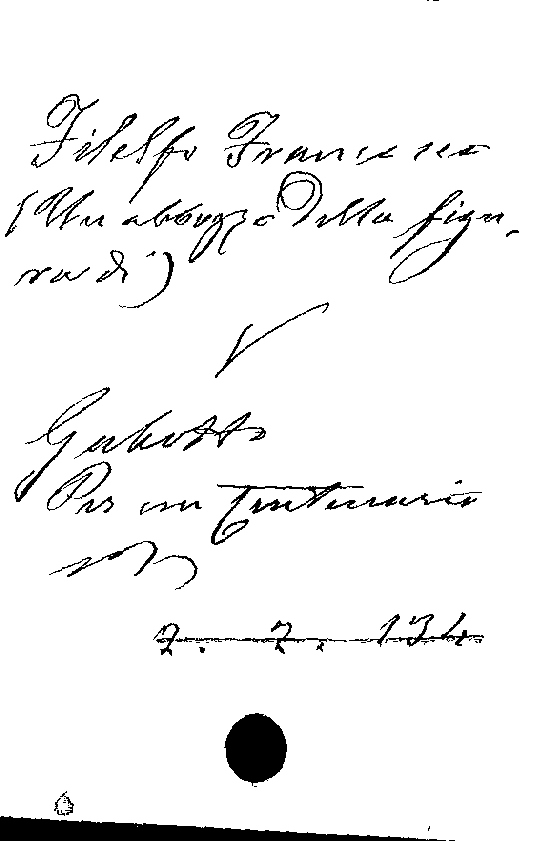 Filelfo Francesco
(Un abbozzo della figu-
ra di)
V
Gabotto
Per un Centenario
2. 2. 134